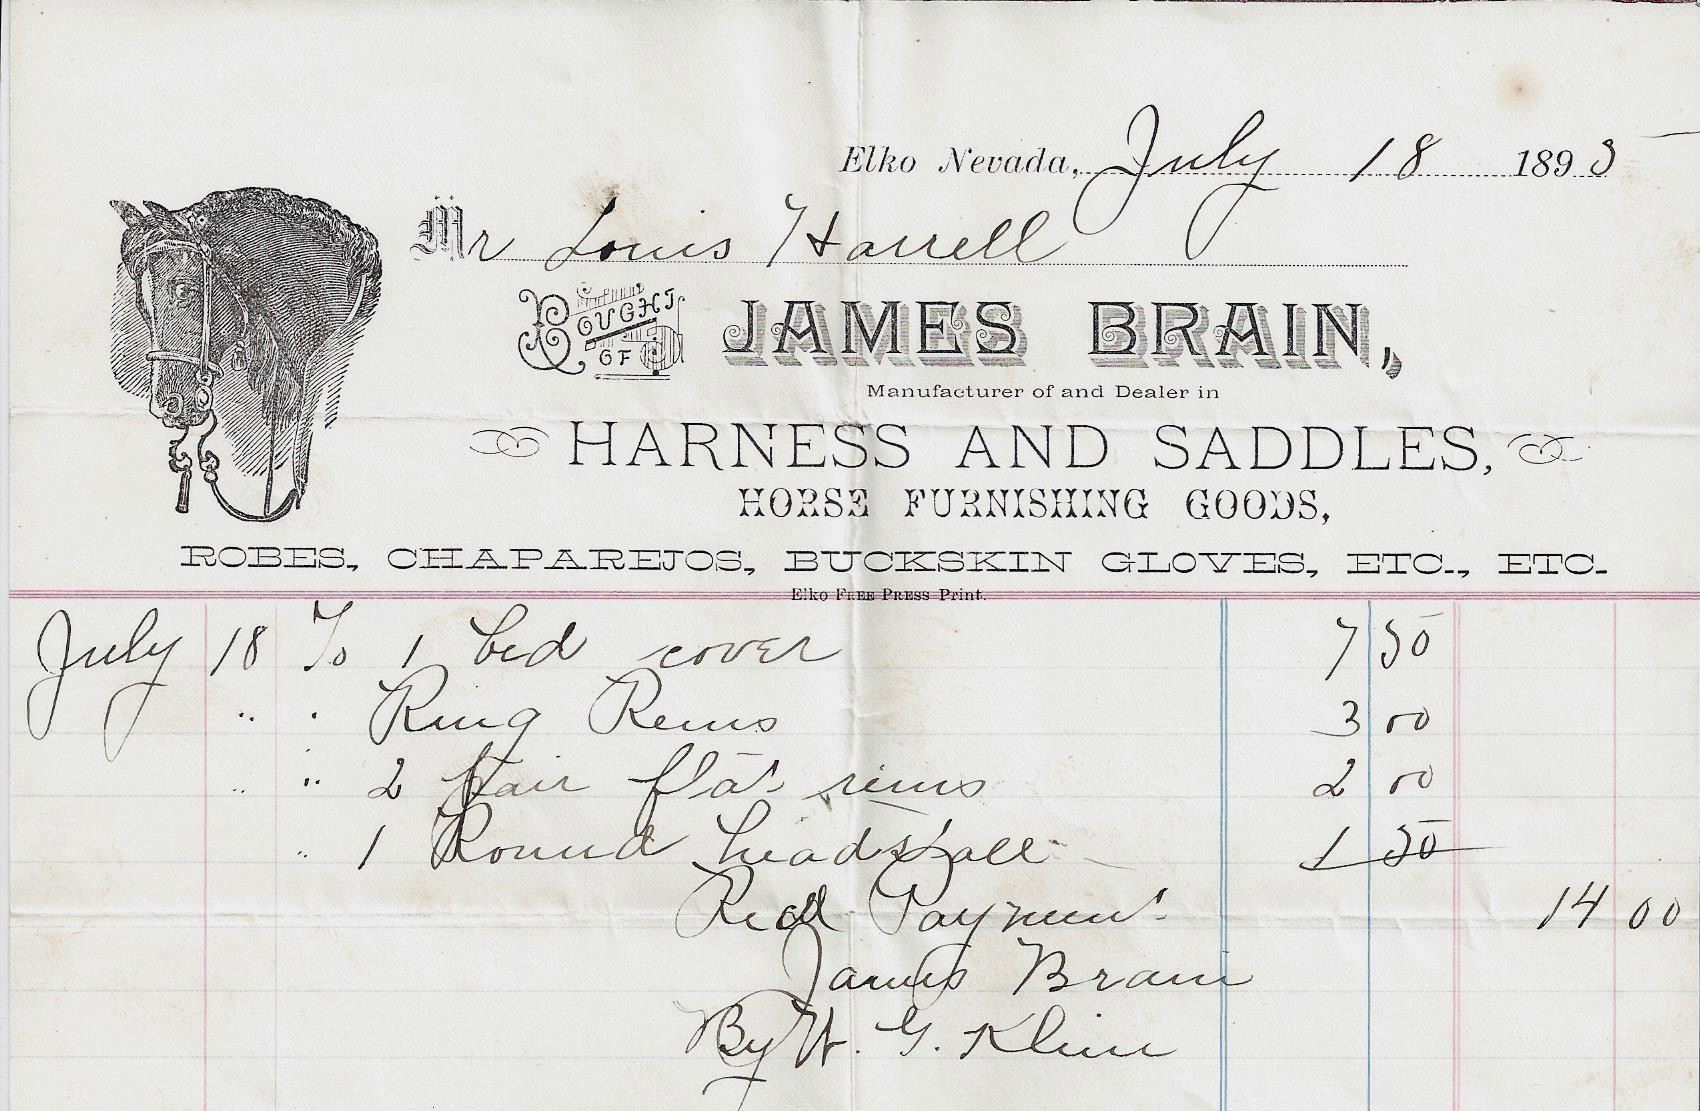 Elko Nevada, July 18 1893
Mr Louis Harrell
BOUGHT OF JAMES BRAIN,
Manufacturer of and Dealer in
HARNESS AND SADDLES,
HORSE FURNISHING GOODS,
ROBES, CHAPAREJOS, BUCKSKIN GLOVES, ETC., ETC.
Elko FREE PRESS Print.
July 18 To 1 bed cover 7 50
" " Ring Reins 3 00
" " 2 pair flat reins 2 00
" 1 Round headstall 1 50
Recd Payment 14 00
James Brain
By W. G. Kline